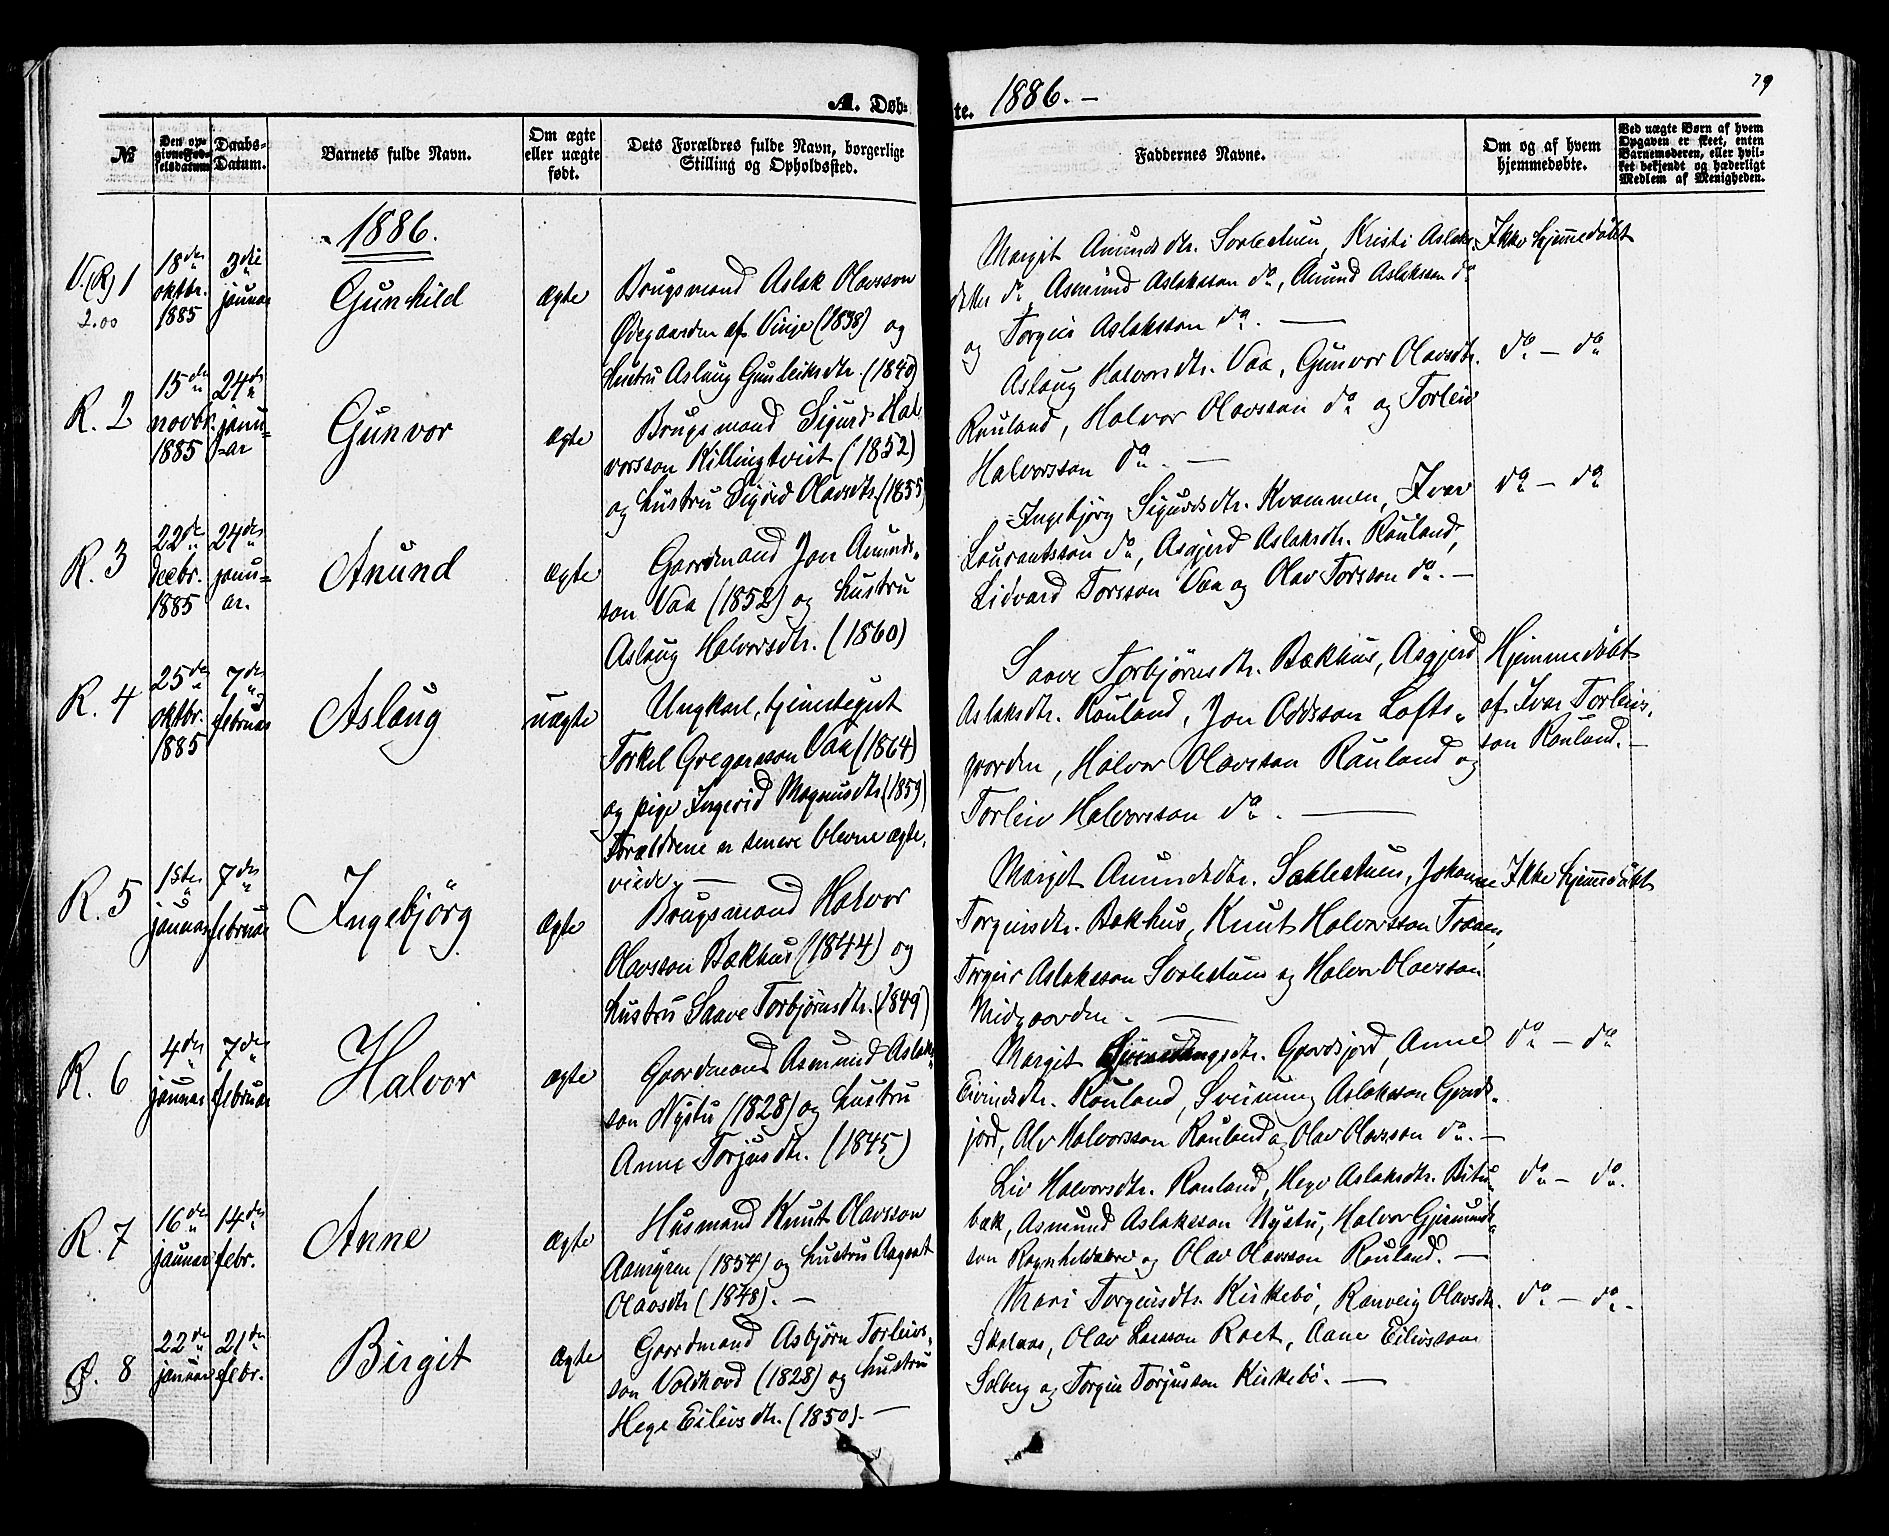 79
A. Døb-
te. 1886. –
№
Den op-
givne Fød-
selsdatum
Daabs-
Datum.
Barnets fulde Navn.
Om ægte
eller uægte
født.
Dets Forældres fulde Navn, borgerlige
Stilling og Opholdssted.
Faddernes Navne.
Om og af hvem
hjemmedøbte.
Ved uægte Børn af hvem
Opgaven er skeet, enten
Barnemoderen, eller hvil-
ket bekjendt og hæderligt
Medlem af Menigheden.
1886.
V.(R) 1
2.00
18de
oktbr.
1885
3die
januar
Gunhild
ægte
Brugsmand Aslak Olavsson
Ødegaarden af Vinje (1838) og
hustru Aslaug Gunleiksdtr. (1840)
Margit Amundsdtr. Sorlestuen, Kristi Aslaks-
datter do, Asmund Aslaksson do, Anund Aslaksson do
og Torgeir Aslaksson do. —
Ikke hjemmedøbt
R. 2
15de
novbr.
1885
24de
janu-
ar
Gunvor
ægte
Brugsmand Sigurd Hal-
vorsson Killingtveit (1852)
og hustru Sigrid Olavsdtr. (1855)
Aslaug Halvorsdtr. Vaa, Gunvor Olavsdtr.
Rauland, Halvor Olavsson do og Torleiv
Halvorsson do. —
do – do
R. 3
22de
decbr.
1885
24de
janu-
ar.
Anund
ægte
Gaardmand Jon Anunds-
son Vaa (1852) og hustru
Aslaug Halvorsdtr. (1860)
Ingebjörg Sigurdsdtr. Kvammen, Ivar
Laurantsson do, Asgjerd Aslaksdtr. Rauland,
Lidvard Torsson Vaa og Olav Torsson do. —
do – do
R. 4
25de
oktbr.
1885
7de
februar
Aslaug
uægte
Ungkarl, tjenstegut
Torkel Gregarsson Vaa (1864)
og pige Ingerid Magnusdtr. (1859)
Forældrene er senere blevne ægte-
viede. —
Saave Torbjörnsdtr. Bækhus, Asgjerd
Aslaksdtr. Rauland, Jon Oddsson Lofts-
gaarden, Halvor Olavsson Rauland og
Torleiv Halvorsson do. —
Hjemmedøbt
af Ivar Torleivs-
son Rauland. –
R. 5
1ste
januar
7de
februar
Ingebjörg
ægte
Brugsmand Halvor
Olavsson Bækhus (1844) og
hustru Saave Torbjörnsdtr. (1849)
Margit Amundsdtr. Sorlestuen, Johanne
Torgeirsdtr. Bækhus, Knut Halvorsson Traaen,
Torgeir Aslaksson Sorlestuen og Halvor Olavsson
Midgaarden. —
Ikke hjemmedøbt
R. 6
4de
januar
7de
februar
Halvor
ægte
Gaardmand Asmund Aslaks-
son Nystu (1828) og hustru
Anne Torjusdtr. (1845)
Margit Sveinungsdtr. Gardsjord, Anne
Eivindsdtr. Rauland, Sveinung Aslaksson Gards-
jord, Alv Halvorsson Rauland og Olav Olavsson do. —
do – do
R. 7
16de
januar
14de
febr.
Anne
ægte
Husmand Knut Olavsson
Aamyren (1854) og hustru Aagaat
Olavsdtr. (1848). –
Liv Halvorsdtr. Rauland, Hege Aslaksdtr. Bitu-
bæk, Asmund Aslaksson Nystu, Halvor Gjermunds-
son Ragnhildsbro og Olav Olavsson Rauland. —
do – do.
Ø. 8
22de
januar
21de
febr.
Birgit
ægte
Gaardmand Asbjörn Torleivs-
son Voldhovd (1828) og hustru
Hege Eilivsdtr. (1850). –
Mari Torgeirsdtr. Kirkebö, Ranveig Olavsdtr.
Skalaas, Olav Larsson Roet, Aane Eilivsson
Solberg og Torgeir Torjusson Kirkebö. —
do – do. –